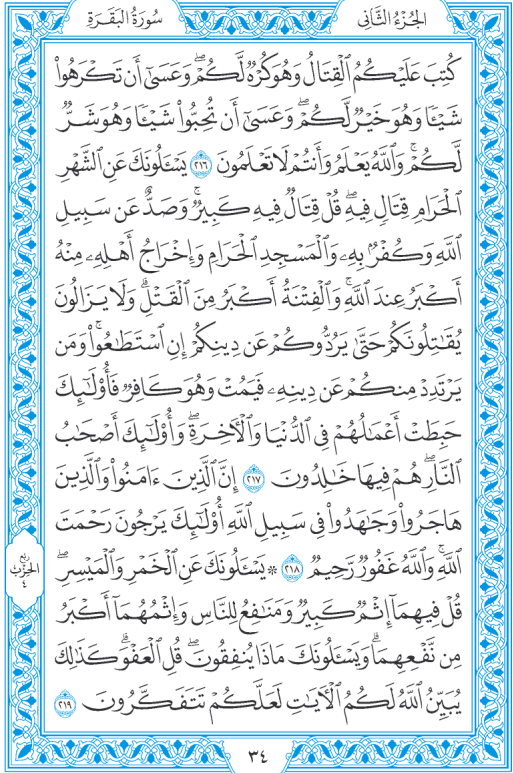 الجُزْءُ الثَّانِي
سُورَةُ البَقَرَةِ
كُتِبَ عَلَيْكُمُ ٱلْقِتَالُ وَهُوَ كُرْهٌ لَّكُمْ ۖ وَعَسَىٰٓ أَن تَكْرَهُوا۟
شَيْـًٔا وَهُوَ خَيْرٌ لَّكُمْ ۖ وَعَسَىٰٓ أَن تُحِبُّوا۟ شَيْـًٔا وَهُوَ شَرٌّ
لَّكُمْ ۗ وَٱللَّهُ يَعْلَمُ وَأَنتُمْ لَا تَعْلَمُونَ ٢١٦ يَسْـَٔلُونَكَ عَنِ ٱلشَّهْرِ
ٱلْحَرَامِ قِتَالٍ فِيهِ ۖ قُلْ قِتَالٌ فِيهِ كَبِيرٌ ۖ وَصَدٌّ عَن سَبِيلِ
ٱللَّهِ وَكُفْرٌۢ بِهِۦ وَٱلْمَسْجِدِ ٱلْحَرَامِ وَإِخْرَاجُ أَهْلِهِۦ مِنْهُ
أَكْبَرُ عِندَ ٱللَّهِ ۚ وَٱلْفِتْنَةُ أَكْبَرُ مِنَ ٱلْقَتْلِ ۗ وَلَا يَزَالُونَ
يُقَـٰتِلُونَكُمْ حَتَّىٰ يَرُدُّوكُمْ عَن دِينِكُمْ إِنِ ٱسْتَطَـٰعُوا۟ ۚ وَمَن
يَرْتَدِدْ مِنكُمْ عَن دِينِهِۦ فَيَمُتْ وَهُوَ كَافِرٌ فَأُو۟لَـٰٓئِكَ
حَبِطَتْ أَعْمَـٰلُهُمْ فِي ٱلدُّنْيَا وَٱلْـَٔاخِرَةِ ۖ وَأُو۟لَـٰٓئِكَ أَصْحَـٰبُ
ٱلنَّارِ ۖ هُمْ فِيهَا خَـٰلِدُونَ ٢١٧ إِنَّ ٱلَّذِينَ ءَامَنُوا۟ وَٱلَّذِينَ
هَاجَرُوا۟ وَجَـٰهَدُوا۟ فِي سَبِيلِ ٱللَّهِ أُو۟لَـٰٓئِكَ يَرْجُونَ رَحْمَتَ
ٱللَّهِ ۚ وَٱللَّهُ غَفُورٌ رَّحِيمٌ ٢١٨ ۞ يَسْـَٔلُونَكَ عَنِ ٱلْخَمْرِ وَٱلْمَيْسِرِ ۖ
قُلْ فِيهِمَآ إِثْمٌ كَبِيرٌ وَمَنَـٰفِعُ لِلنَّاسِ وَإِثْمُهُمَآ أَكْبَرُ
مِن نَّفْعِهِمَا ۗ وَيَسْـَٔلُونَكَ مَاذَا يُنفِقُونَ ۖ قُلِ ٱلْعَفْوَ ۗ كَذَٰلِكَ
يُبَيِّنُ ٱللَّهُ لَكُمُ ٱلْـَٔايَـٰتِ لَعَلَّكُمْ تَتَفَكَّرُونَ ٢١٩
ربع
الحزب
٤
٣٤